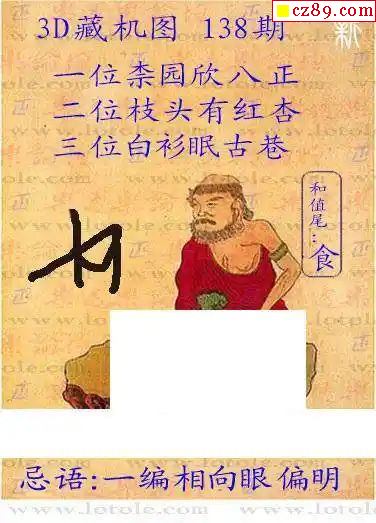 cz89.com
3D藏机图 138期
新
一位柰园欣八正
二位枝头有红杏
三位白衫眠古巷
和值尾：食
www.lotole.com
忌语:一编相向眼偏明
www.lotole.com